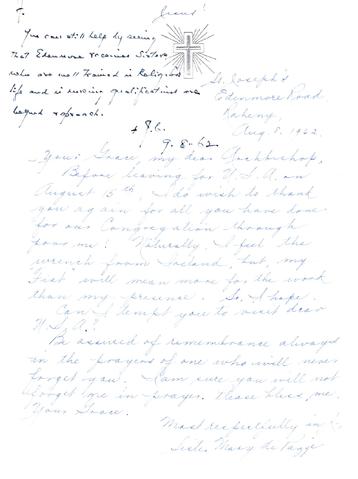 Jesus!
You can still help by seeing
that Edenmore receives Sisters
who are well trained in Religious
life and in nursing qualifications are
beyond reproach.
9-8-62
St. Joseph's
Edenmore Road
Raheny,
Aug. 8, 1962
Your Grace, my dear Archbishop,
Before leaving for U.S.A. on
August 15th I do wish to thank
you again for all you have done
for our Congregation through
poor me! Naturally, I feel the
wrench from Ireland, but, my
"Fiat" will mean more for the work
than my presence. So, I hope.
Can I tempt you to visit dear
U.S.A.?
Be assured of remembrance always
in the prayers of one who will never
forget you. I am sure you will not
forget me in prayer. Please bless me,
Your Grace.
Most respectfully in
Sister Mary de